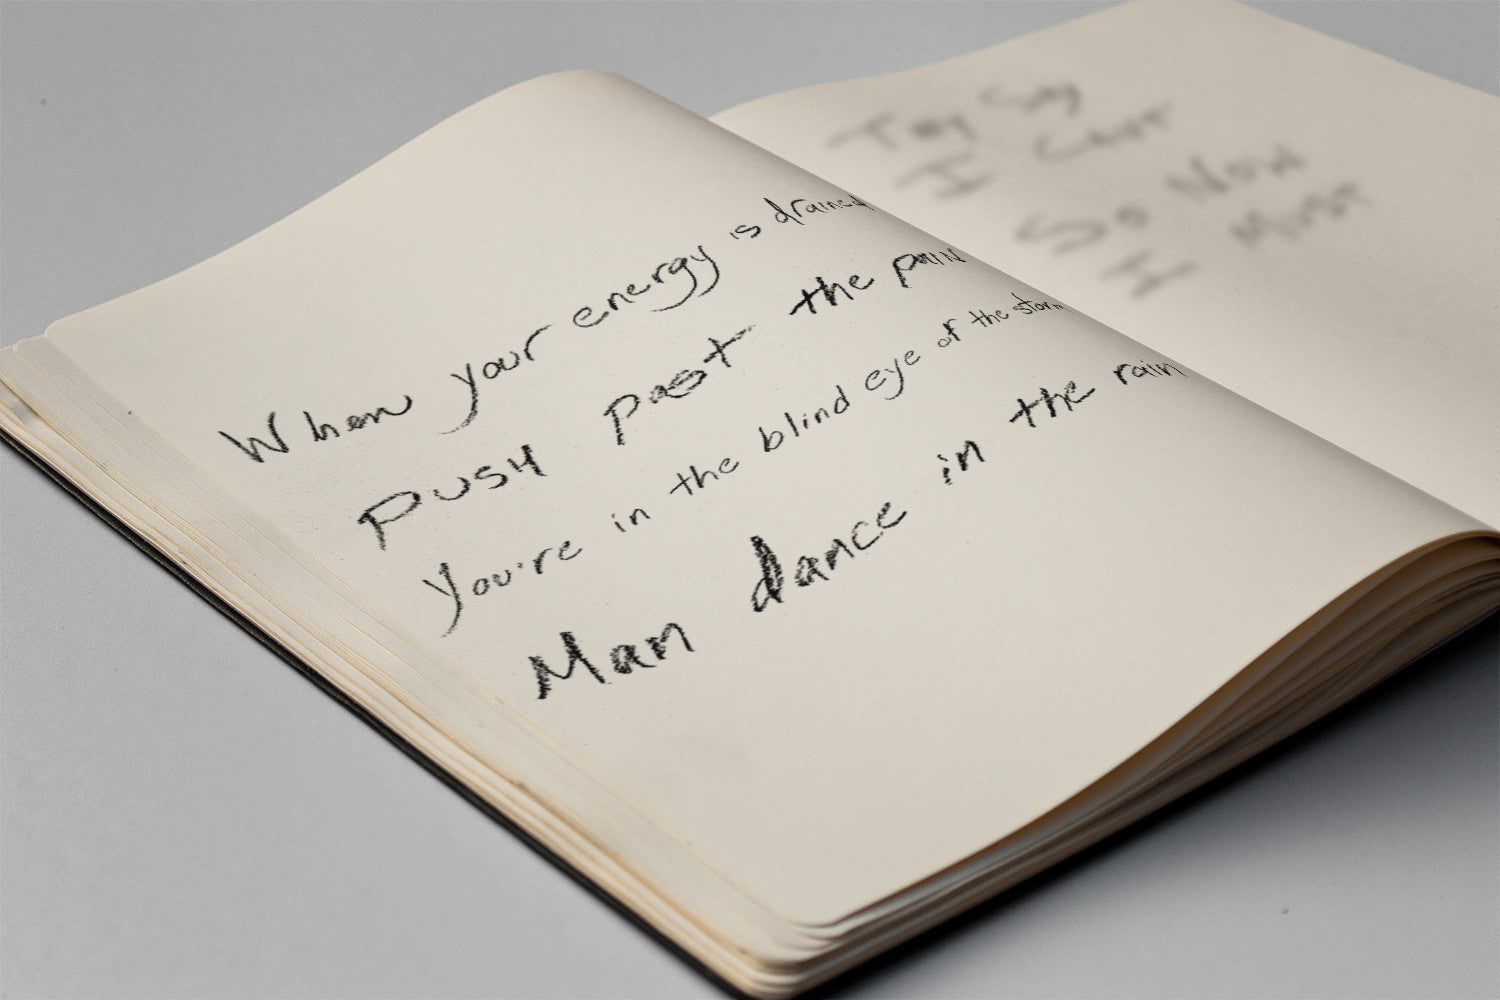 When your energy is drained
PUSH past the pain
You're in the blind eye of the storm
Man dance in the rain
They Say
I Can't
So Now
I Must